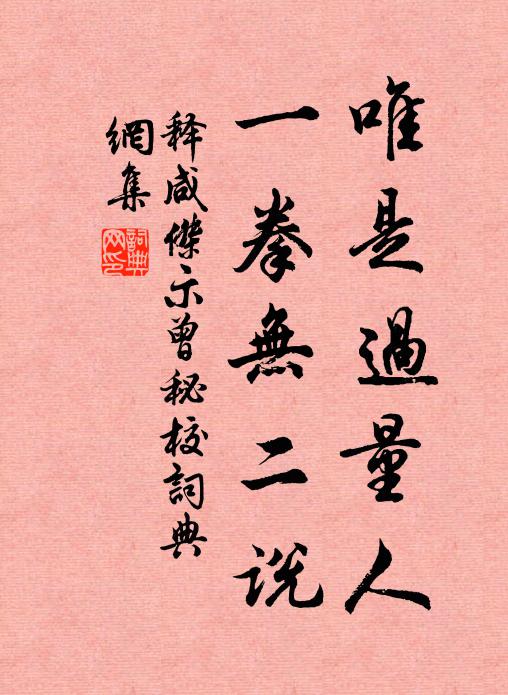 唯是過量人
一拳無二説
释咸傑示曾秘校詞典
網集
詞典網印